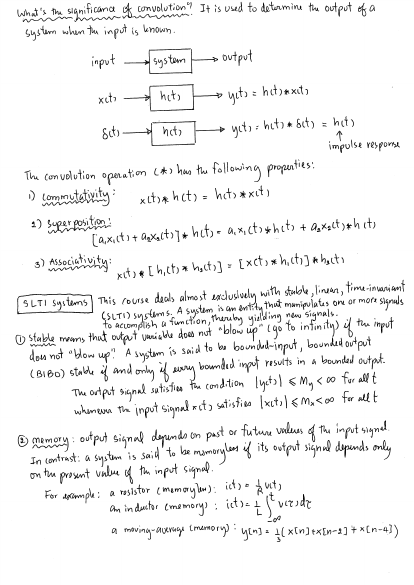 What's the significance of convolution? It is used to determine the output of a
system when the input is known.
input → system → output
x(t) → h(t) → y(t) = h(t)*x(t)
δ(t) → h(t) → y(t) = h(t) * δ(t) = h(t)
↑
impulse response
The convolution operation (*) has the following properties:
1) Commutativity: x(t)* h(t) = h(t)*x(t)
2) Superposition:
[a₁x₁(t) + a₂x₂(t)] * h(t) = a₁x₁(t)*h(t) + a₂x₂(t)*h(t)
3) Associativity:
x(t)*[h₁(t)*h₂(t)] = [x(t)*h₁(t)]*h₂(t)
SLTI systems This course deals almost exclusively with stable, linear, time-invariant
(SLTI) systems. A system is an entity that manipulates one or more signals
to accomplish a function, thereby yielding new signals.
① Stable means that output variable does not "blow up" (go to infinity) if the input
does not "blow up". A system is said to be bounded-input, bounded output
(BIBO) stable if and only if every bounded input results in a bounded output.
The output signal satisfies the condition |y(t)| ≤ My < ∞ for all t
whenever the input signal x(t) satisfies |x(t)| ≤ Mx < ∞ for all t
② memory: output signal depends on past or future values of the input signal.
In contrast: a system is said to be memoryless if its output signal depends only
on the present value of the input signal.
For example: a resistor (memoryless): i(t) = 1/R v(t)
an inductor (memory): i(t) = 1/L ∫_{-∞}^{t} v(τ)dτ
a moving-average (memory): y[n] = 1/3 (x[n]+x[n-2]+x[n-4])